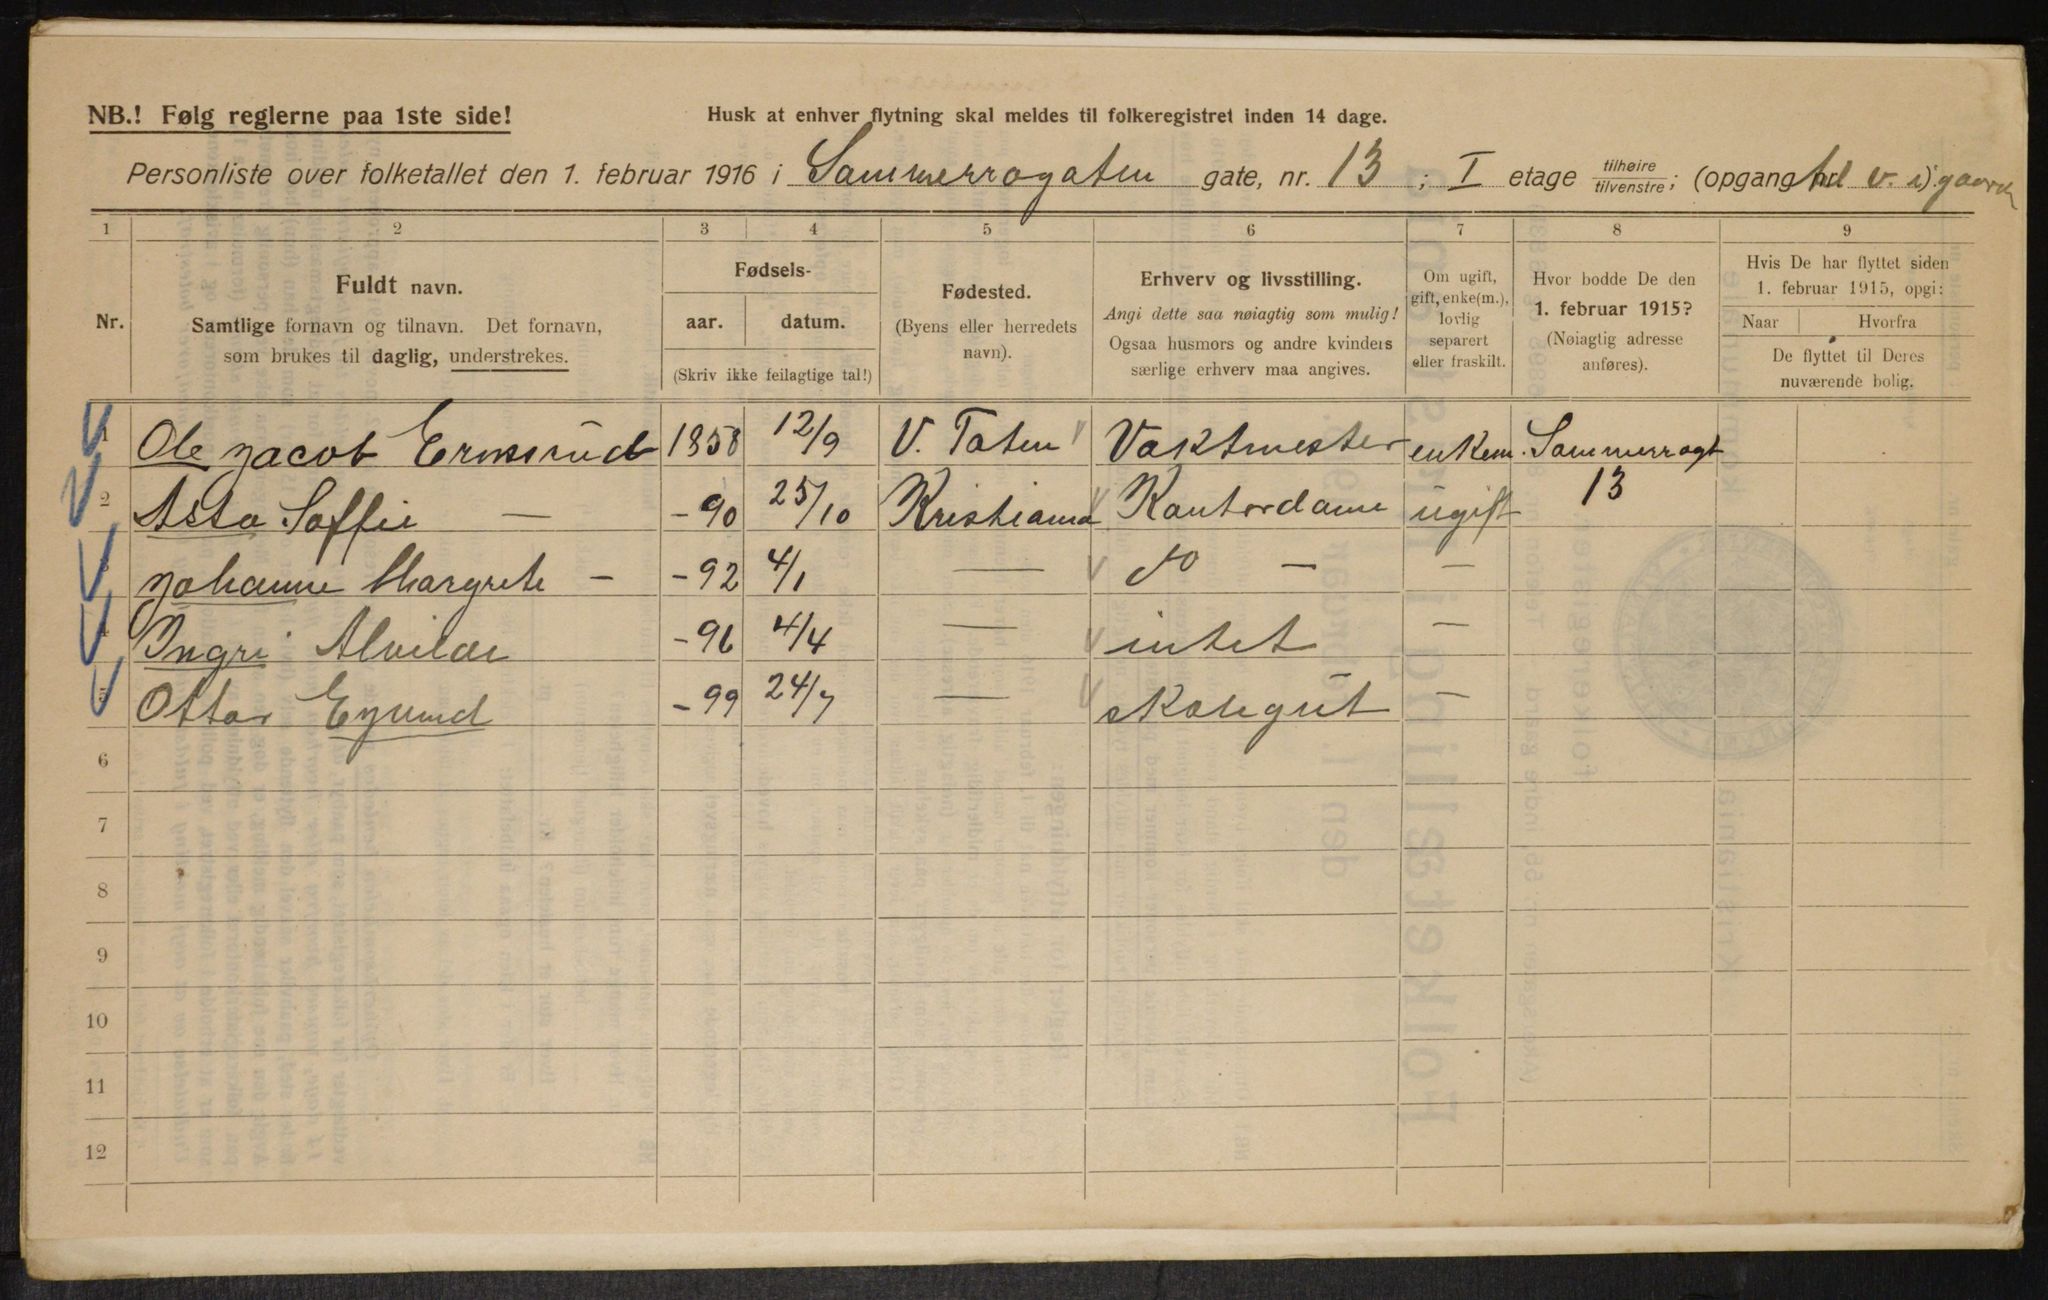 NB.! Følg reglerne paa 1ste side!
Husk at enhver flytning skal meldes til folkeregistret inden 14 dage.
Personliste over folketallet den 1. februar 1916 i Sommerrogaten gate, nr. 13 ; I etage tilhøire tilvenstre; (opgang v. i) gaard
1 2 3 4 5 6 7 8 9
Nr.
Fuldt navn.
Samtlige fornavn og tilnavn. Det fornavn,
som brukes til daglig, understrekes.
Fødsels-
aar. datum.
(Skriv ikke feilagtige tal!)
Fødested.
(Byens eller herredets
navn).
Erhverv og livsstilling.
Angi dette saa nøiagtig som mulig!
Ogsaa husmors og andre kvinders
særlige erhverv maa angives.
Om ugift,
gift, enke(m.),
lovlig
separert
eller fraskilt.
Hvor bodde De den
1. februar 1915?
(Nøiagtig adresse
anføres).
Hvis De har flyttet siden
1. februar 1915, opgi:
Naar Hvorfra
De flyttet til Deres
nuværende bolig.
1 Ole Jacob Ermsrud 1858 12/9 V. Toten Vaktmester enkem. Sommerrogt
2 Asta Soffie — -90 25/10 Kristiania Kontordame ugift 13
Johanne Margrete — -92 4/1 — do — —
4 Ingri Alvilde -96 4/4 — intet —
5 Ottar Eyvind -99 24/7 — skolegut —
6
7
8
9
10
11
12